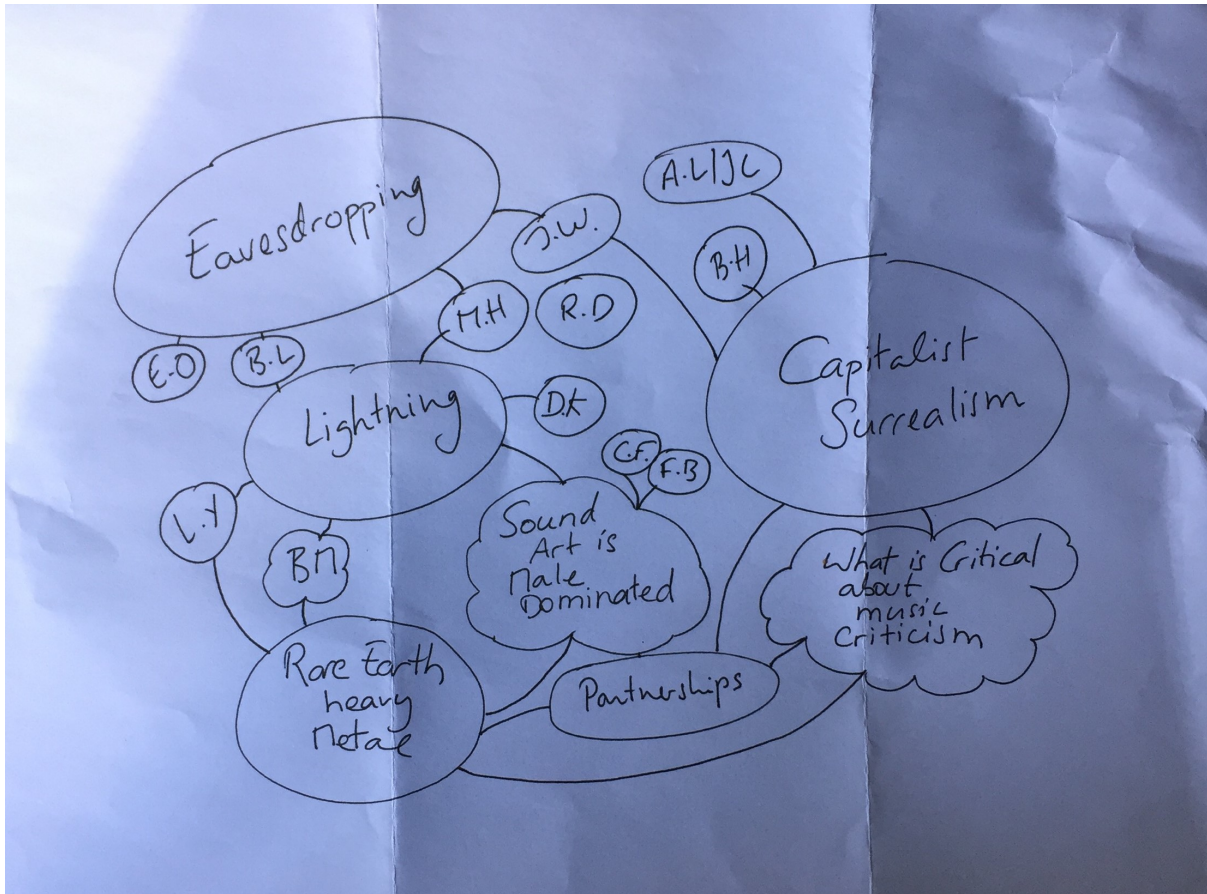 Eavesdropping
J.W.
A.L/JC
B.H
M.H
R.D
E.O
B.L
Capitalist
Surrealism
Lightning
D.K
C.F.
F.B
L.Y
BM
Sound
Art is
Male
Dominated
What is Critical
about
music
Criticism
Rare Earth
heavy
Metal
Partnerships